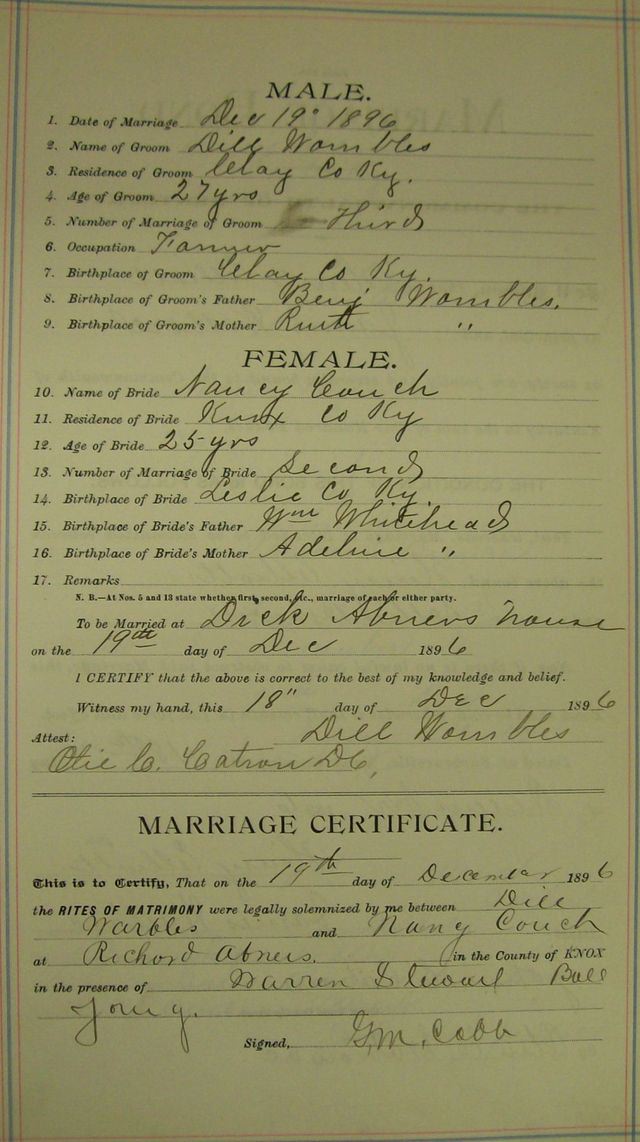 MALE.
1. Date of Marriage Dec 19" 1896
2. Name of Groom Dill Wombles
3. Residence of Groom Clay Co Ky.
4. Age of Groom 27 yrs
5. Number of Marriage of Groom Third
6. Occupation Farmer
7. Birthplace of Groom Clay Co Ky.
8. Birthplace of Groom's Father Benj Wombles.
9. Birthplace of Groom's Mother Ruth "
FEMALE.
10. Name of Bride Nancy Couch
11. Residence of Bride Knox Co Ky
12. Age of Bride 25 yrs
13. Number of Marriage of Bride Second
14. Birthplace of Bride Leslie Co Ky.
15. Birthplace of Bride's Father Wm Whitehead
16. Birthplace of Bride's Mother Adeline "
17. Remarks
N. B.—At Nos. 5 and 13 state whether first, second, &c., marriage of each or either party.
To be Married at Dick Abners house
on the 19th day of Dec 1896
I CERTIFY that the above is correct to the best of my knowledge and belief.
Witness my hand, this 18" day of Dec 1896
Dill Wombles
Attest:
Otie C. Catron DC,
MARRIAGE CERTIFICATE.
This is to Certify, That on the 19th day of December 1896
the RITES OF MATRIMONY were legally solemnized by me between Dill
Warbles and Nancy Couch
at Richord Abners. in the County of KNOX
in the presence of Warren Stuart Ball
Young.
Signed, G.M. Cobb